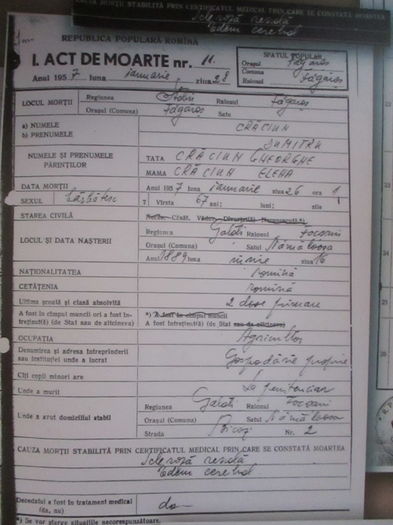 CAUZA MORȚII STABILITĂ PRIN CERTIFICATUL MEDICAL PRIN CARE SE CONSTATĂ MOARTEA
Edem cerebral
REPUBLICA POPULARĂ ROMÎNĂ
I. ACT DE MOARTE nr. 11.
Anul 1957 luna ianuarie ziua 28
SFATUL POPULAR
Orașul Făgăraș
Comuna
Raionul Făgăraș
LOCUL MORȚII Regiunea Stalin Raionul Făgăraș
Orașul (Comuna) Făgăraș Satul
a) NUMELE CRĂCIUN
b) PRENUMELE DUMITRU
NUMELE ȘI PRENUMELE PĂRINȚILOR
TATA CRĂCIUN GHEORGHE
MAMA CRĂCIUN ELENA
DATA MORȚII Anul 1957 luna ianuarie ziua 26 ora 1
SEXUL bărbătesc 7) Vîrsta 67 ani; luni; zile
STAREA CIVILĂ
LOCUL ȘI DATA NAȘTERII
Regiunea Galați Raionul Focșani
Orașul (Comuna) Satul Nănăloasa
Anul 1889 luna iunie ziua 16
NAȚIONALITATEA romînă
CETĂȚENIA romînă
Ultima școală și clasă absolvită 2 clase primare
A fost în cîmpul muncii ori a fost întreținut(ă) (de Stat sau de altcineva)
*) A fost în cîmpul muncii
A fost întreținut(ă) (de Stat sau de altcineva)
OCUPAȚIA Agricultor
Denumirea și adresa întreprinderii sau instituției unde a lucrat Gospodărie proprie
Cîți copii minori are
Unde a murit La penitenciar
Unde a avut domiciliul stabil
Regiunea Galați Raionul Focșani
Orașul (Comuna) Satul Nănăloasa
Strada Nr. 2
CAUZA MORȚII STABILITĂ PRIN CERTIFICATUL MEDICAL PRIN CARE SE CONSTATĂ MOARTEA
Edem cerebral
Decedatul a fost în tratament medical (da, nu) da
*) Se vor șterge situațiile necorespunzătoare.